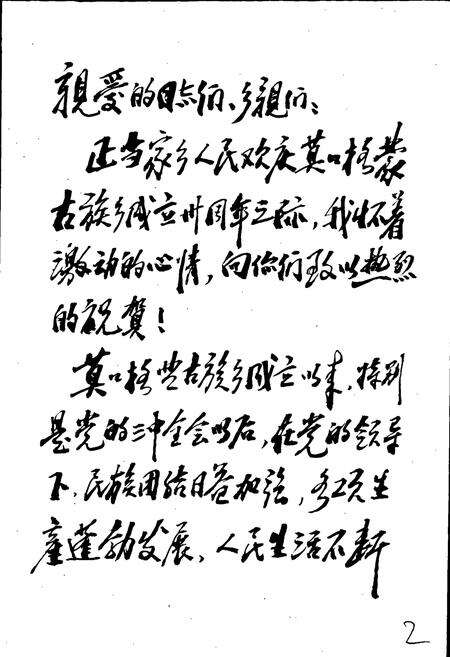 親爱的同志们、乡親们：
正当家乡人民欢庆莫口格蒙
古族乡成立卅周年之际，我怀着
激动的心情，向你们致以热烈
的祝贺！
莫口格蒙古族乡成立以来，特别
是党的三中全会以后，在党的领导
下，民族团结日益加强，各项生
產蓬勃发展，人民生活不断
2